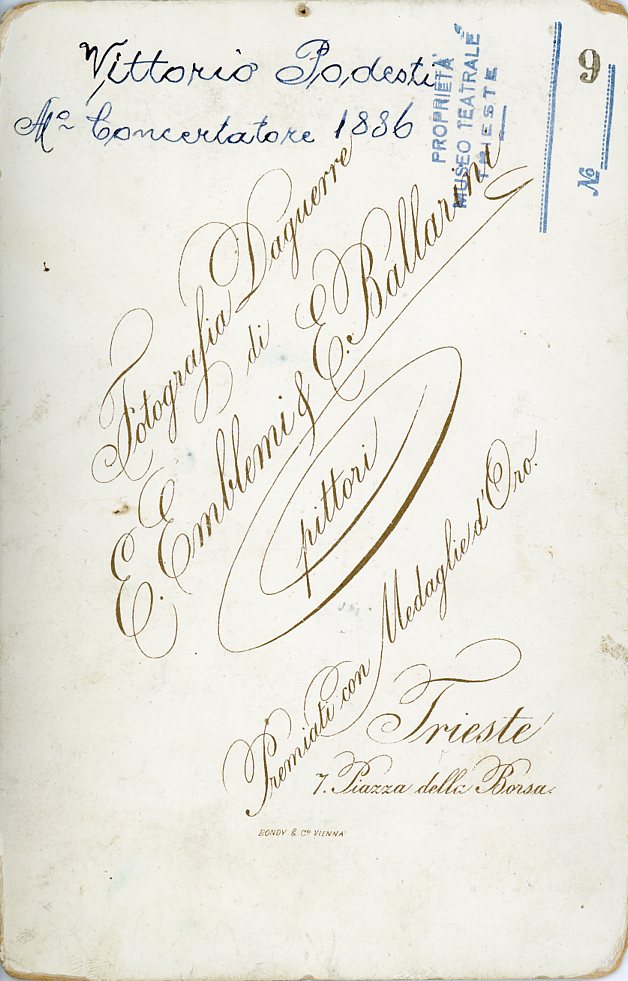 Vittorio Podesti
Mo Concertatore 1886
PROPRIETÀ
MUSEO TEATRALE
TRIESTE
No 9
Fotografia Daguerre
di
E. Emblemi & E. Ballarini
pittori
Premiati con Medaglie d'Oro.
Trieste
7. Piazza della Borsa.
BONDY & Co VIENNA